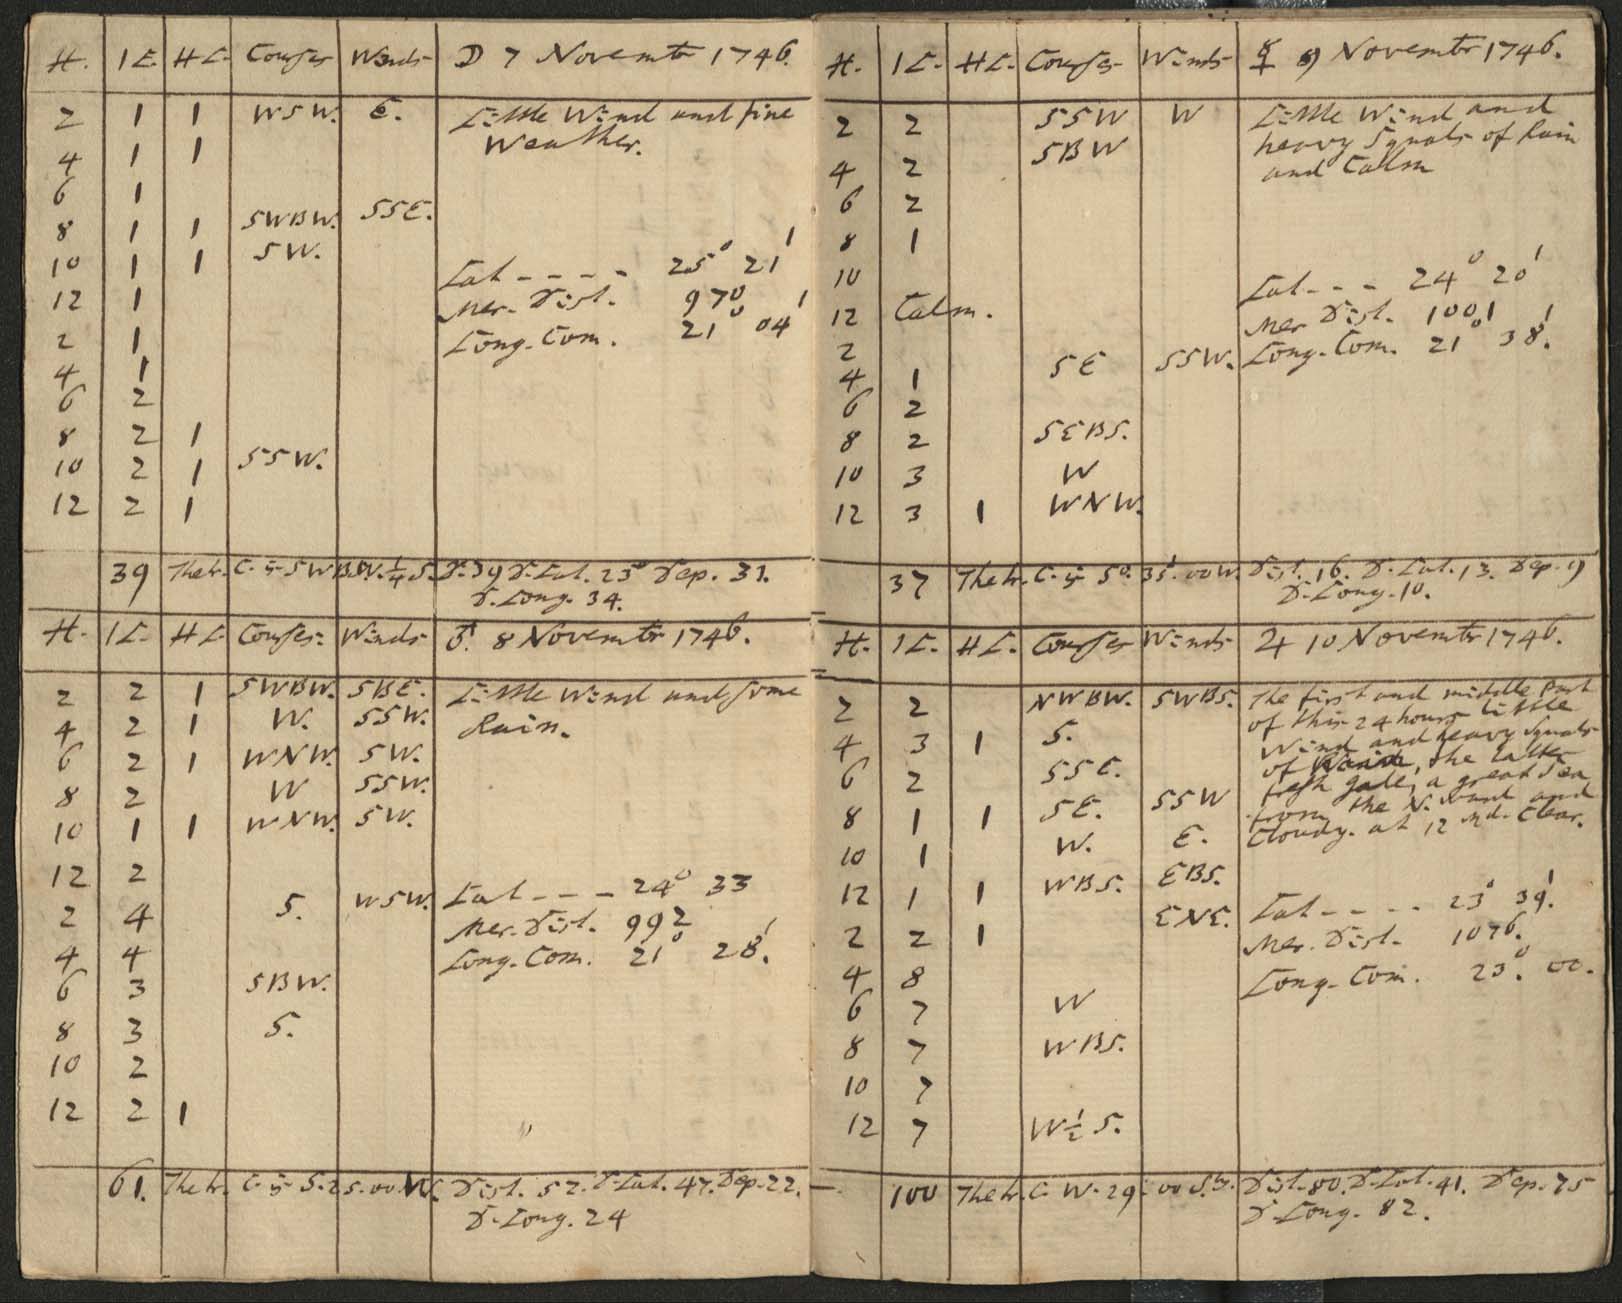 H. 1L. HL. Courses Winds ☽ 7 Novembr 1746.
2 1 1 WSW. E. Little Wind and fine
4 1 1 Weather.
6 1
8 1 1 SWBW. SSE.
10 1 1 SW.
Lat - - - - 25° 21'
12 1
Mer. Dist. 970
2 1
Long. Com. 21° 04'
4 1
6 2
8 2 1
10 2 1 SSW.
12 2 1
39 The tr. C. is SWBW. ¼ S. D. 39 D. Lat. 23 Dep. 31.
D. Long. 34.
H. 1L. HL. Courses. Winds ♂. 8 Novembr 1746.
2 2 1 SWBW. SBE. Little Wind and some
4 2 1 W. SSW. Rain.
6 2 1 WNW. SW.
8 2 W SSW.
10 1 1 WNW. SW.
12 2
2 4 S. WSW. Lat - - - 24° 33
Mer. Dist. 992
4 4
Long. Com. 21° 28'.
6 3 SBW.
8 3 S.
10 2
12 2 1
61. The tr. C. is S. 25.00 W. Dist. 52. D. Lat. 47. Dep. 22.
D. Long. 24
H. 1L. HL. Courses Winds ☿ 9 Novembr 1746.
2 2 SSW W Little Wind and
4 2 SBW heavy Squals of Rain
and Calm
6 2
8 1
10
Lat - - - 24° 20'
12 Calm.
Mer Dist. 1001
2
Long. Com. 21° 38'.
4 1 SE SSW.
6 2
8 2 SEBS.
10 3 W
12 3 1 WNW.
37 The tr. C. is So. 35.00 W. Dist. 16. D. Lat. 13. Dep. 9
D. Long. 10.
H. 1L. HL. Courses Winds ♃ 10 Novembr 1746.
2 2 NWBW. SWBS. The first and middle Part
of this 24 hours Little
4 3 1 S. Wind and heavy Squals
6 2 SSE. of the latter
fresh gale, a great Sea
8 1 1 SE. SSW from the N. ward and
10 1 W. E. Cloudy. at 12 Md. Clear.
12 1 1 WBS. EBS.
Lat - - - - 23° 39'.
2 2 1 ENE.
Mer. Dist. 1076.
4 8
Long. Com. 23°. 00.
6 7 W
8 7 WBS.
10 7
12 7 W ½ S.
100 The tr. C. W. 29.00 S. Dist. 80. D. Lat. 41. Dep. 75
D. Long. 82.